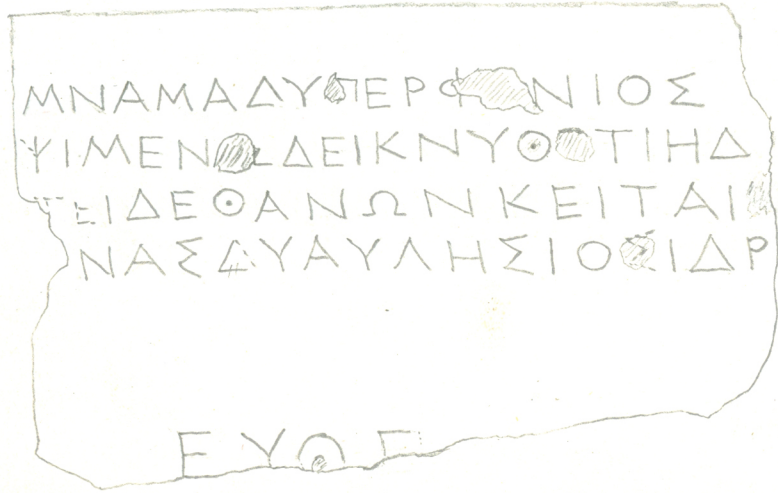 ΜΝΑΜΑΔΥΠΕΡΦ ΝΙΟΣ
ΨΙΜΕΝ ΔΕΙΚΝΥΘ ΤΙΗΔ
ΕΙΔΕΘΑΝΩΝΚΕΙΤΑΙ
ΝΑΣΔΥΑΥΛΗΣΙΟ ΙΔΡ
ΕΥ